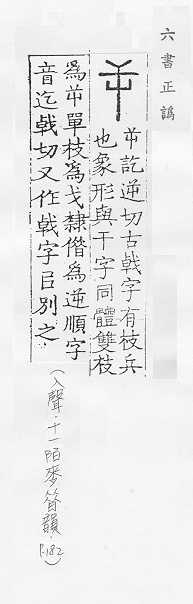 六書正譌
屰訖逆切古戟字有枝兵
也象形與干字同體雙枝
為屰單枝為戈隸借為逆順字
音迄戟切又作戟字㠯別之
(入聲·十一陌麥昔韻·P.182)